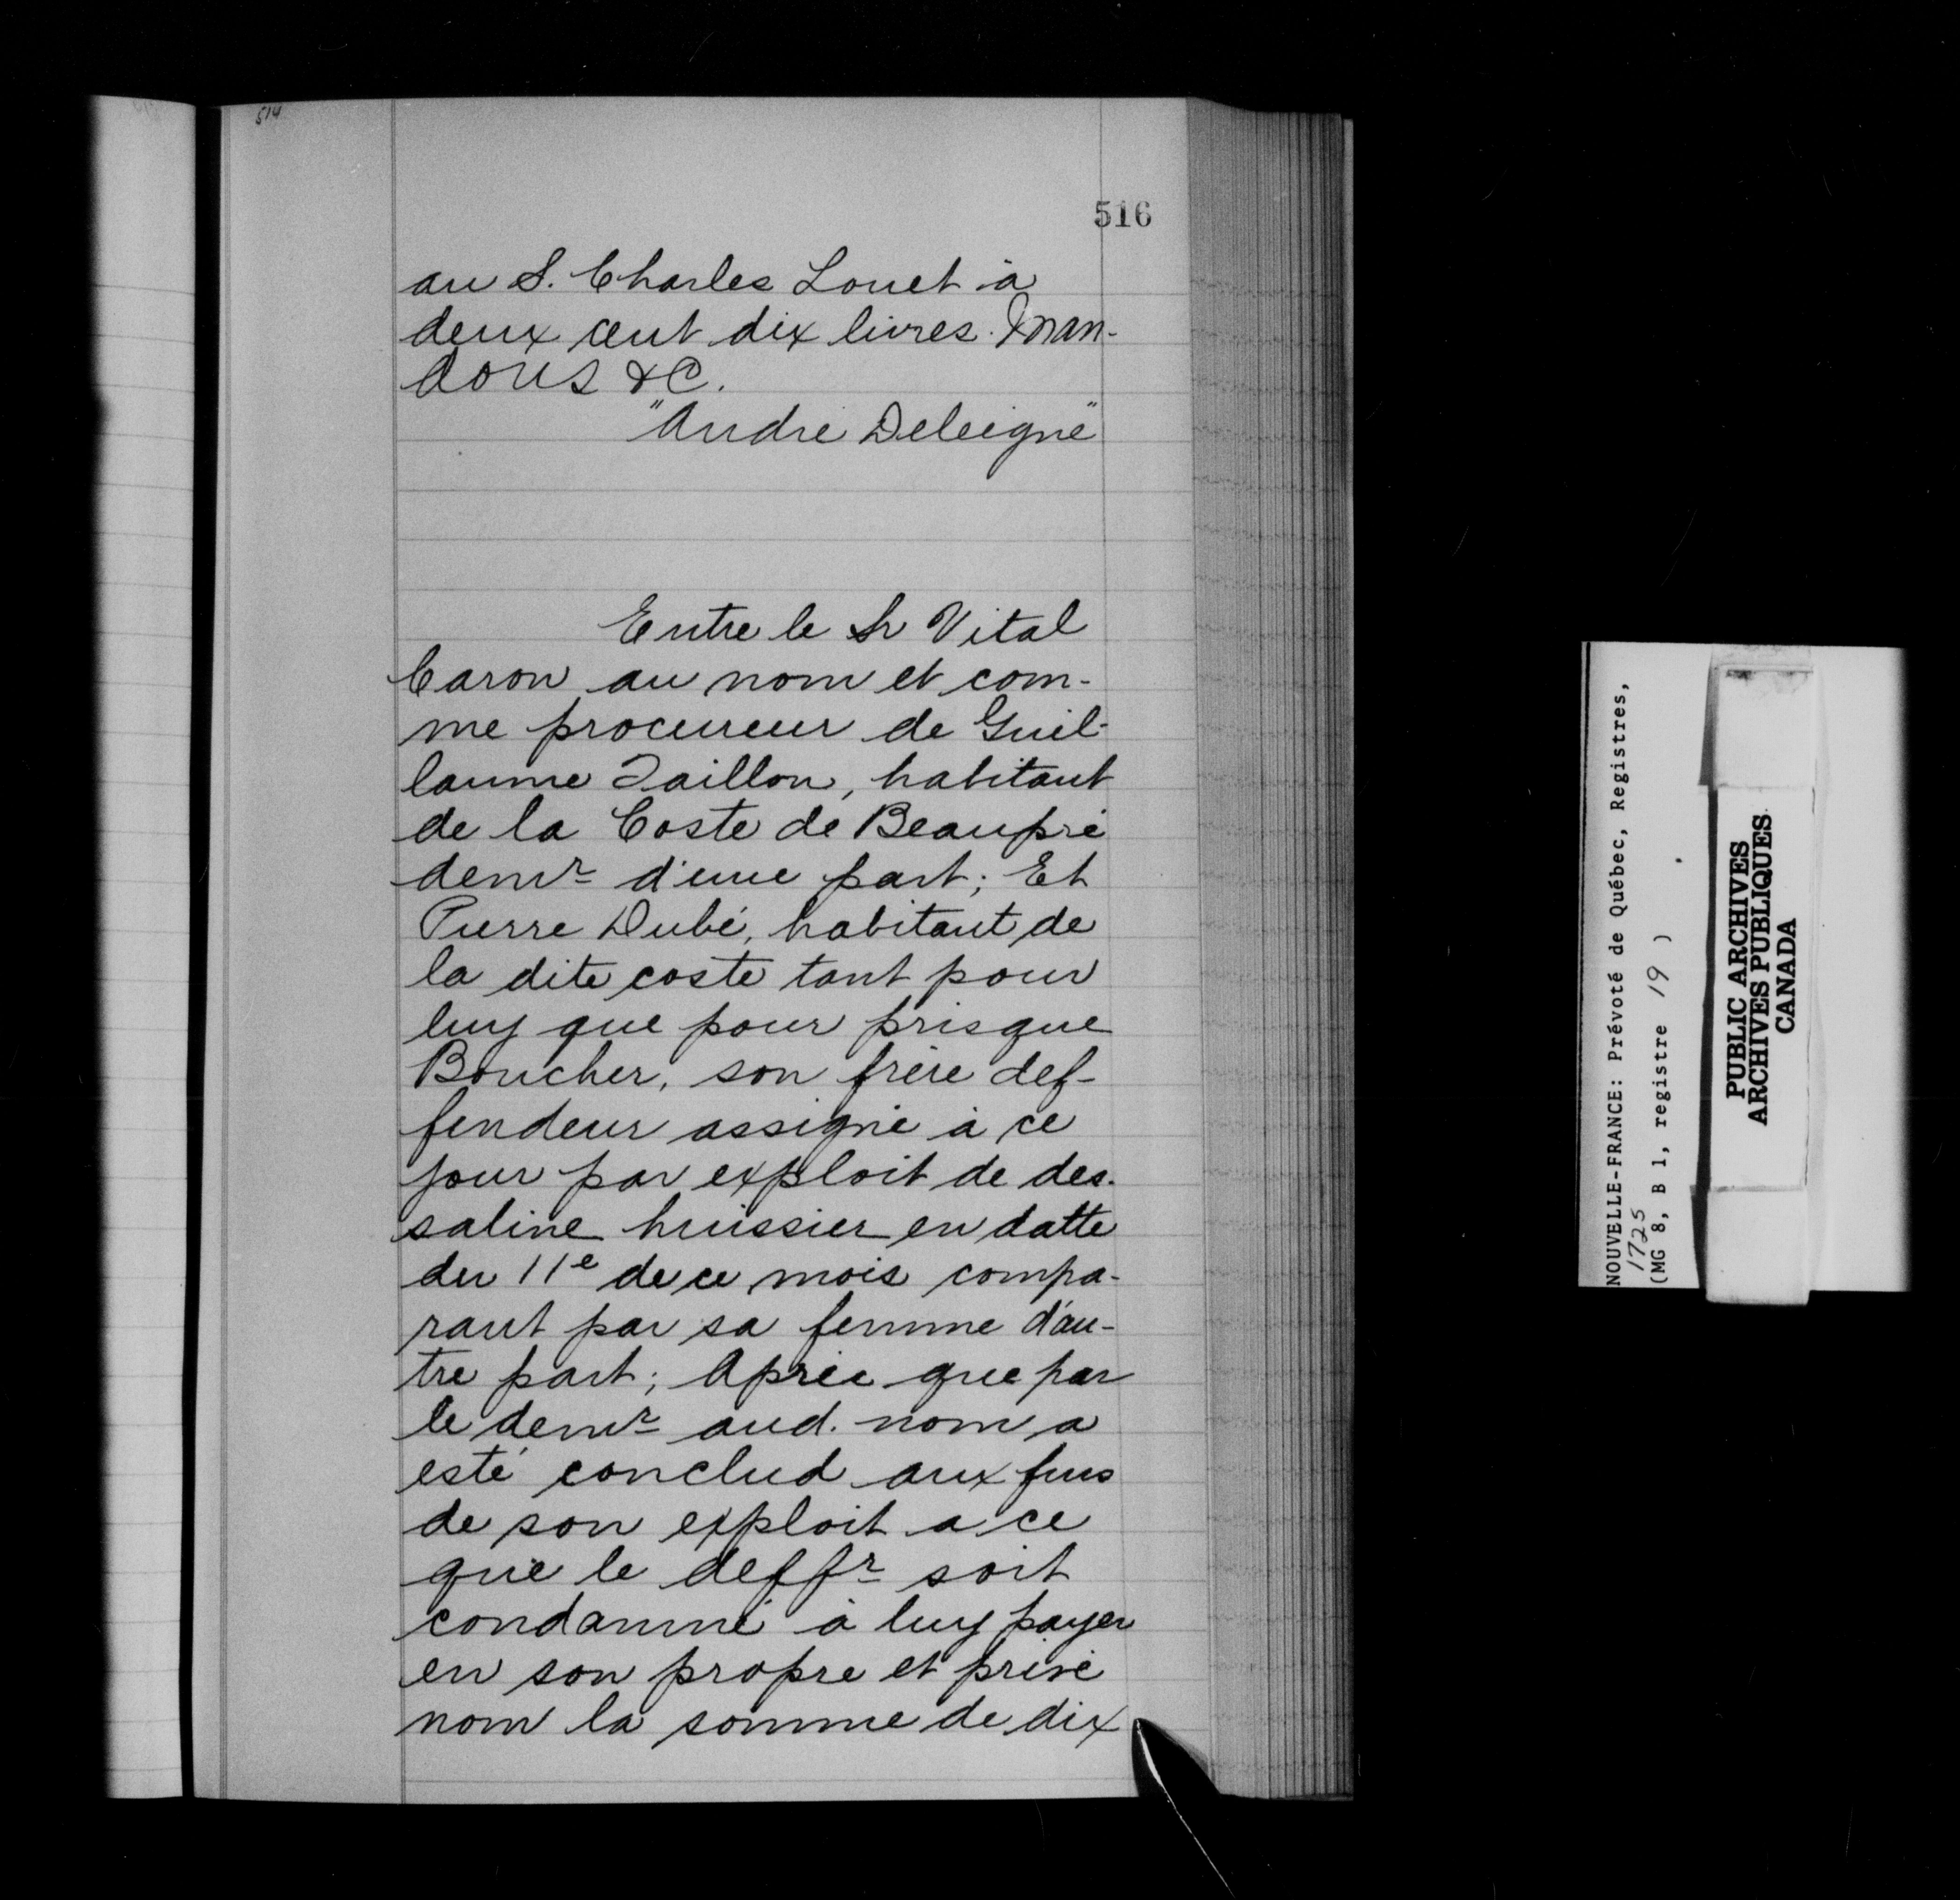 514
516
au S. Charles Louet à
deux cent dix livres. Man-
dons &C.
"André Deleigne"
Entre le Sr Vital
Caron au nom et com-
me procureur de Guil-
laume Taillon, habitant
de la Coste de Beaupré
demr d'une part; Et
Pierre Dubé, habitant de
la dite coste tant pour
luy que pour prisque
Boucher, son frère def-
fendeur assigné à ce
jour par exploit de des-
saline huissier en datte
du 11e de ce mois compa-
rant par sa femme d'au-
tre part; Après que par
le demr aud. nom a
esté conclud aux fins
de son exploit a ce
que le deffr soit
condamné à luy payer
en son propre et privé
nom la somme de dix
NOUVELLE-FRANCE: Prévoté de Québec, Registres,
1725
(MG 8, B 1, registre 19 )
PUBLIC ARCHIVES
ARCHIVES PUBLIQUES
CANADA